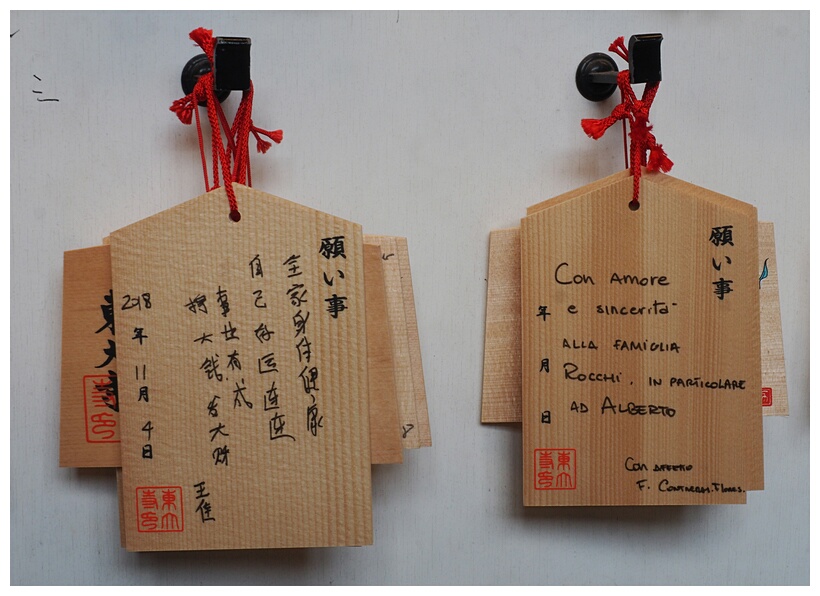 願い事
全家身体健康
自己好运连连
事业有成
挣大钱 发大财
王佳
2018年11月4日
東大
寺印
東大寺
寺印
願い事
Con Amore
e sincerità
ALLA FAMIGLIA
ROCCHI, IN PARTICOLARE
AD ALBERTO
Con affetto
F. CONTRERAS.
年 月 日
東大
寺印